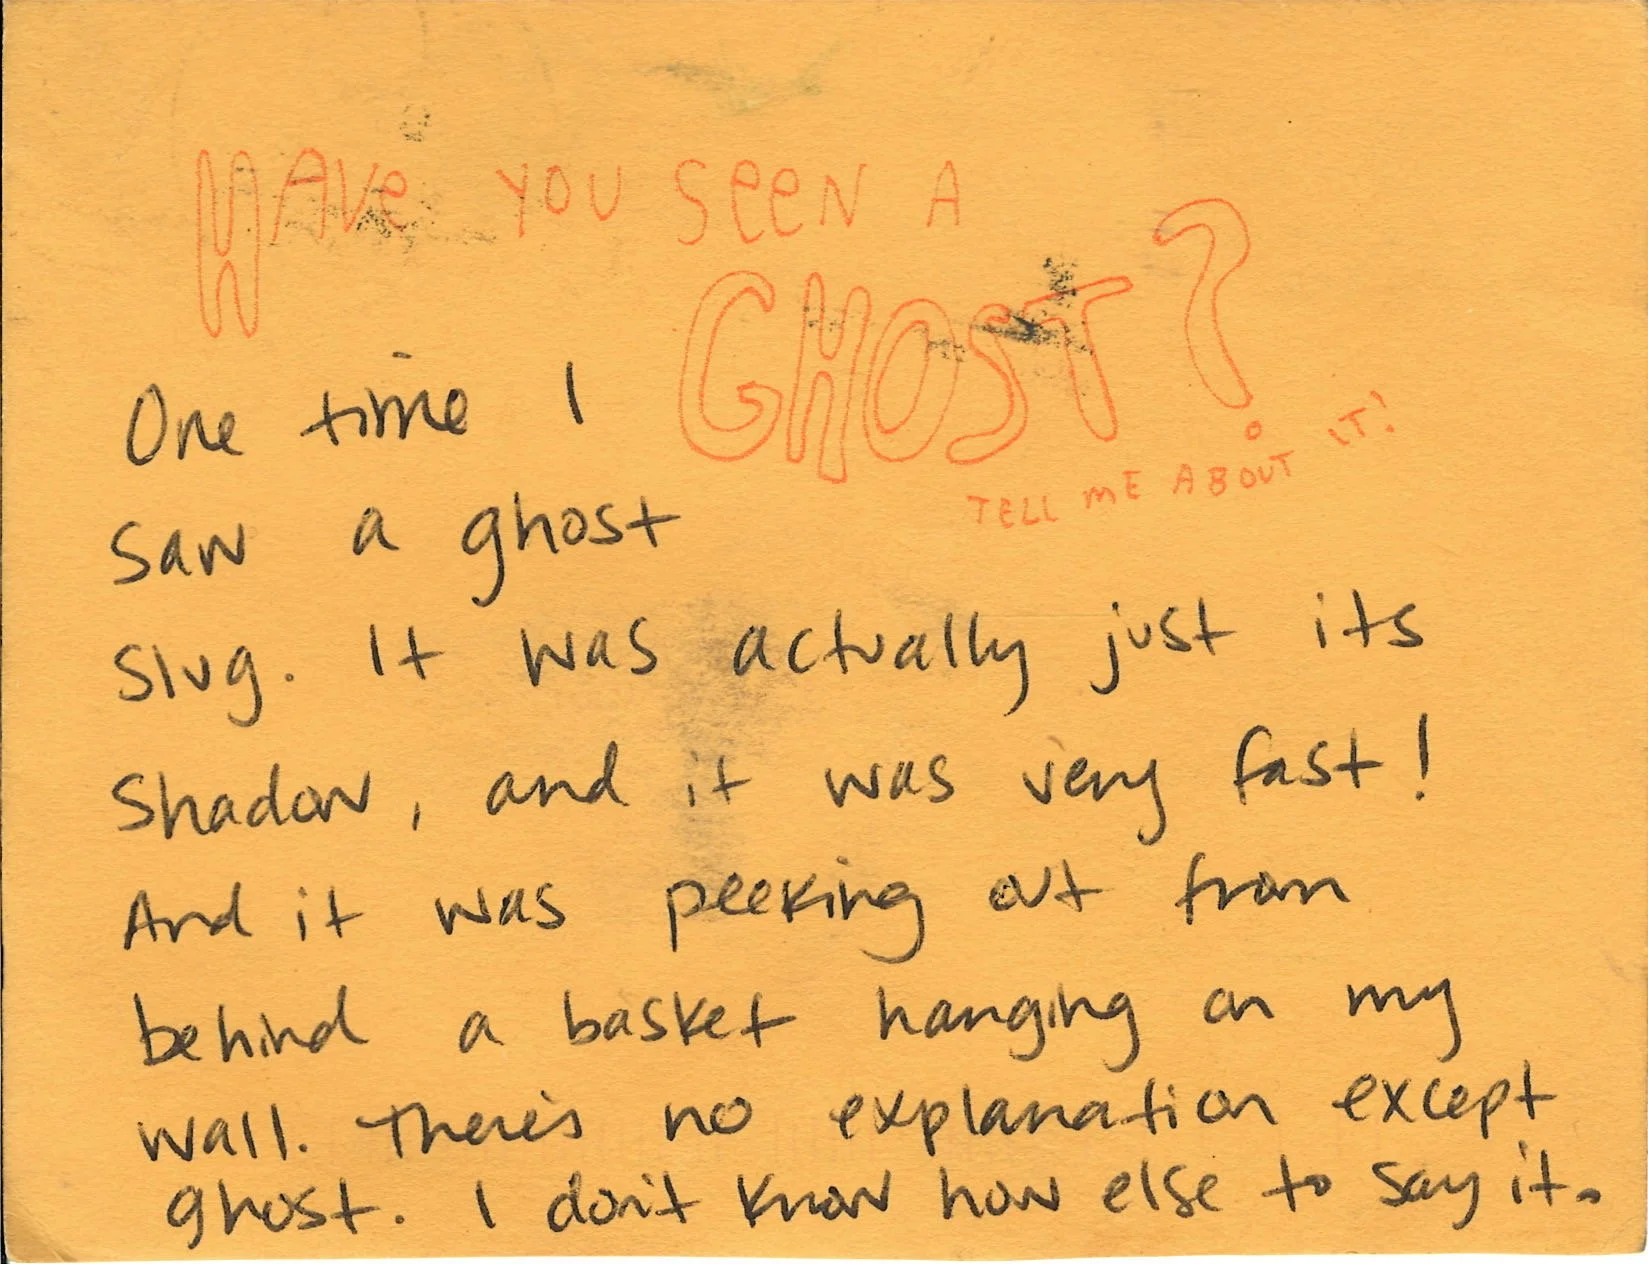 HAVe YOU SeeN A
GHOST?
TELL ME ABOUT IT!
One time I
saw a ghost
slug. It was actually just its
shadow, and it was very fast!
And it was peeking out from
behind a basket hanging on my
wall. There's no explanation except
ghost. I don't know how else to say it.